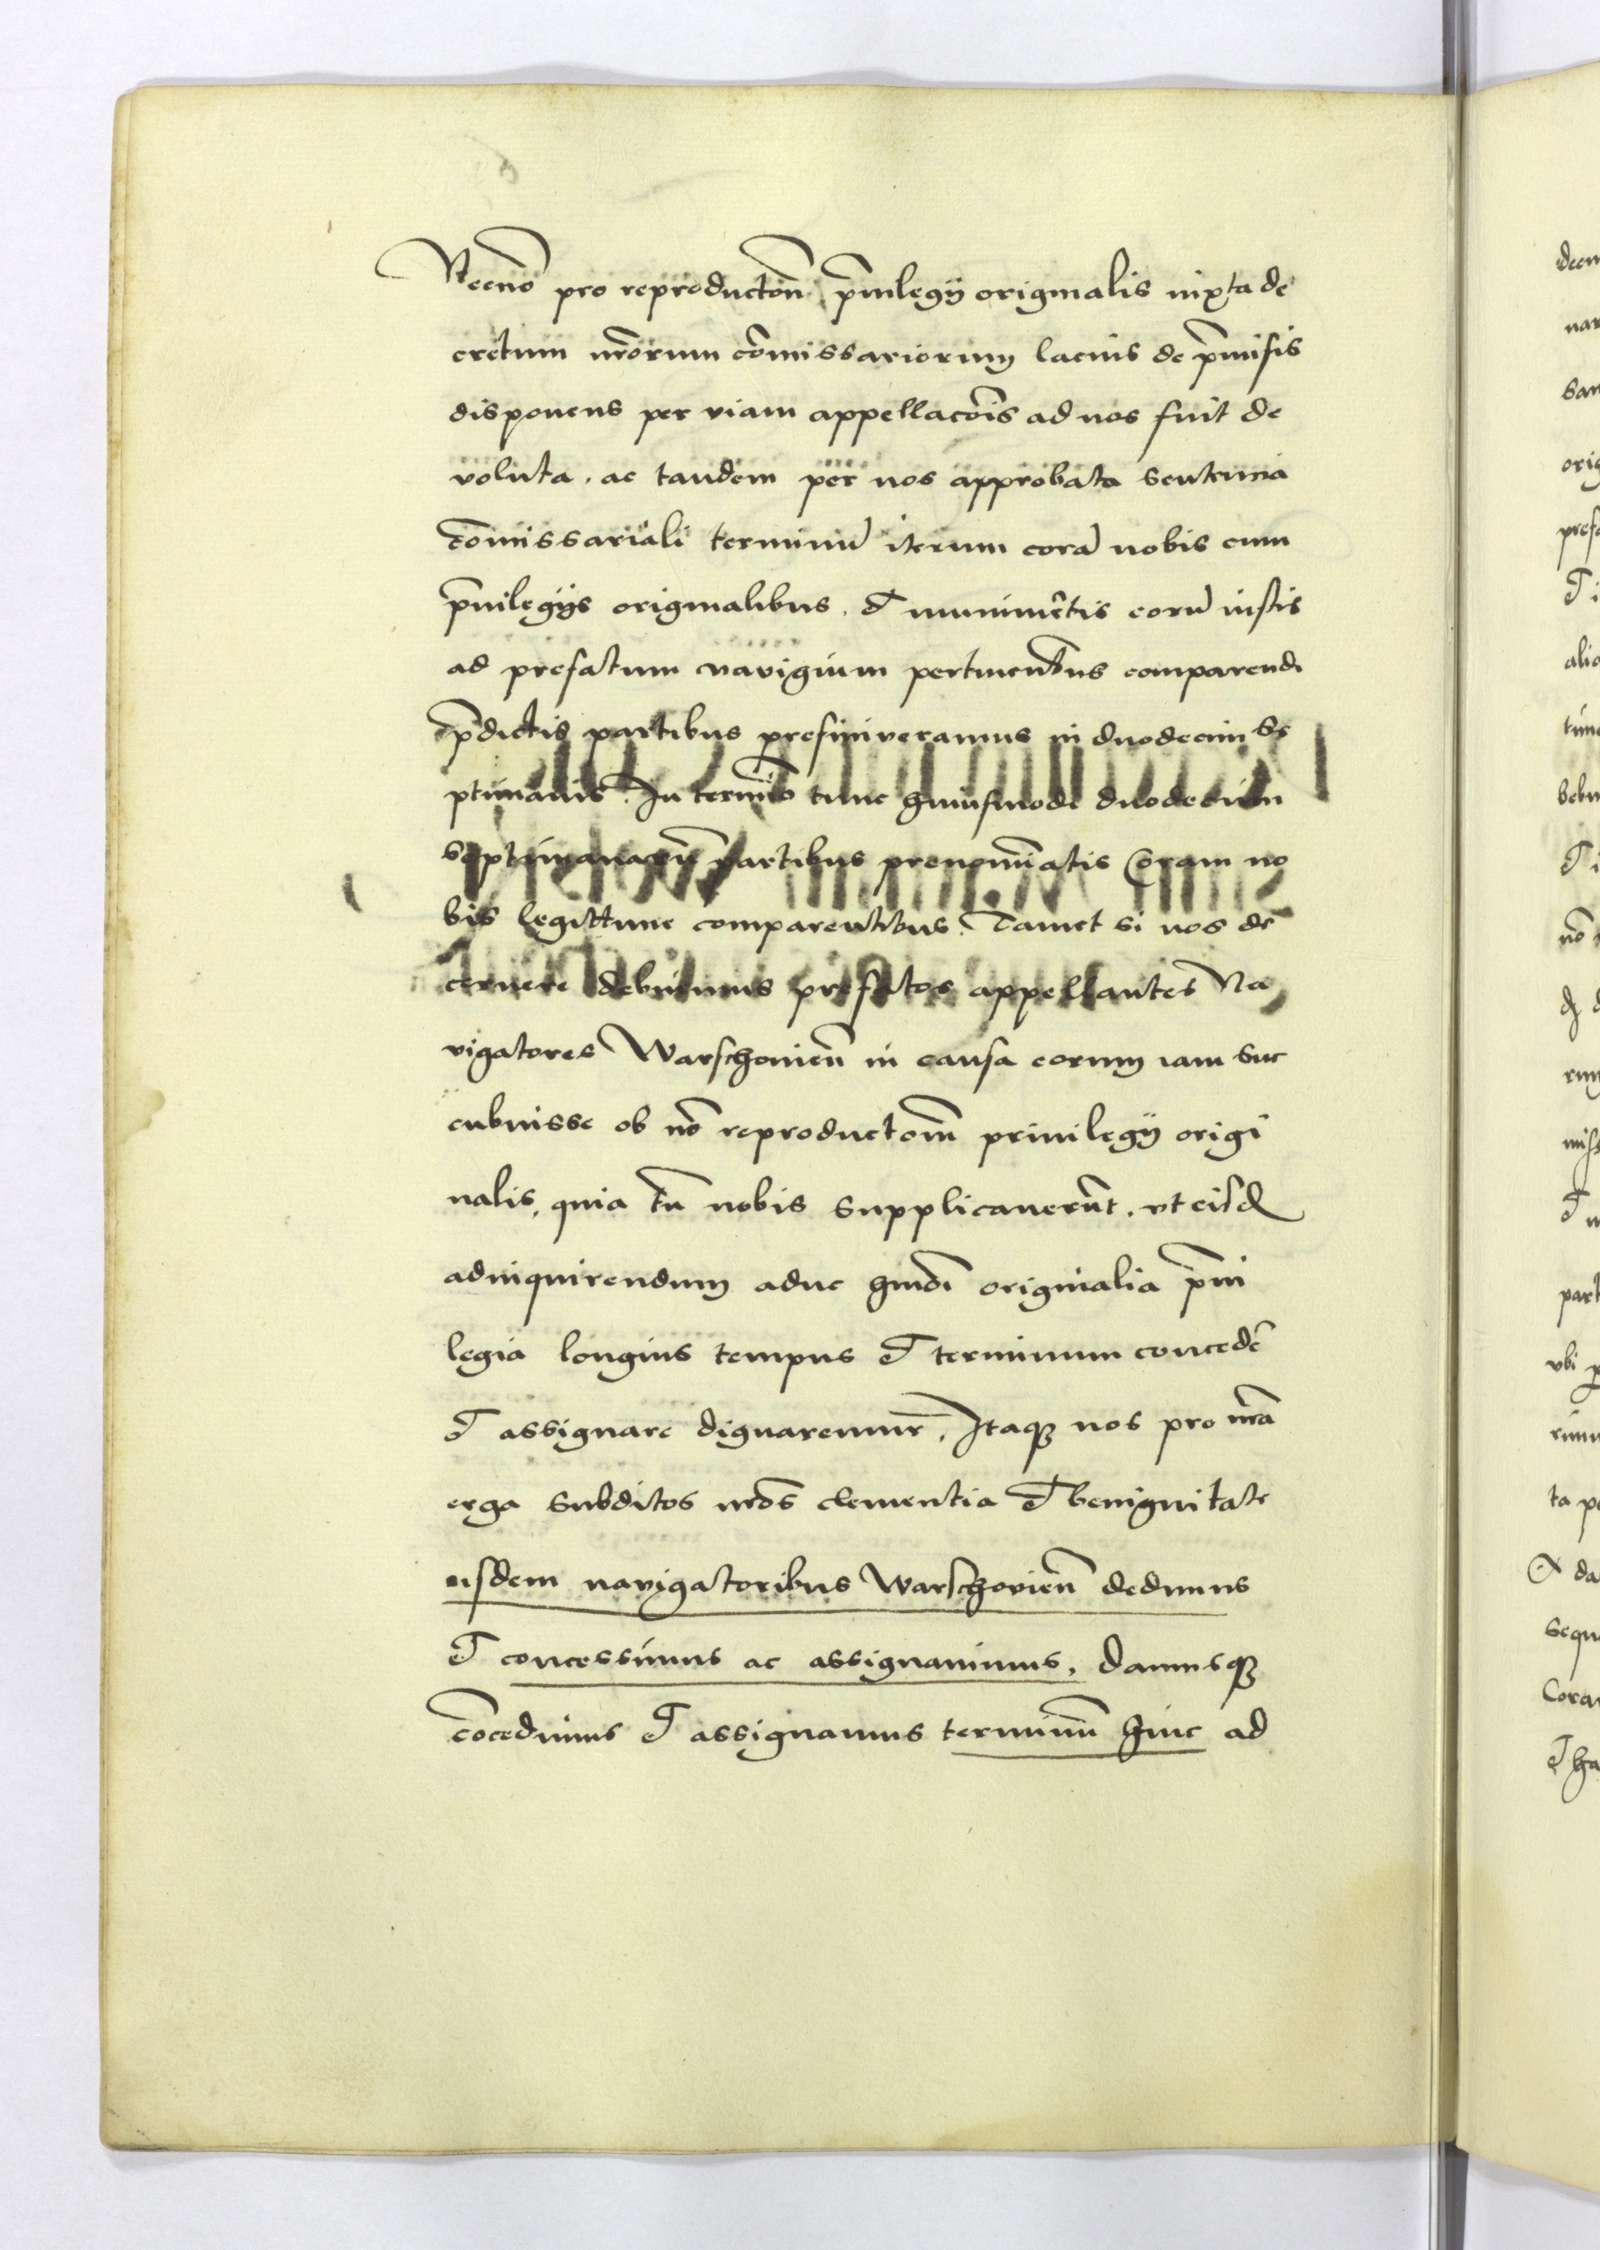 Necnō pro reproductoē p̄uilegij originalis iuxta de
cretum nr̄orum cōmissariorum lacius de p̄missis
disponens per viam appellacōis ad nos fuit de
voluta . ac tandem per nos approbata sentencia
cōmissariali terminū iterum corā nobis cum
p̄uilegijs originalibus . et munimētis eorū iustis
ad prefatum navigium pertinentibus comparendi
p̄dictis partibus prefiniveramus in duodecim se
ptimanis . In termīo tunc huiusmodi duodecim
septimanarū partibus prenomīatis Coram no
bis legittime comparentibus . Tamet si nos de
cernere debuimus prefatos appellantes Na
vigatores Warschovieñ in causa eorum iam suc
cubuisse ob nō reproductoēm priuilegij origi
nalis, quia tn̄ nobis supplicauerūt . vt eisd
adinquirendum aduc hmōi originalia p̄ui
legia longius tempus et terminum concedē
et assignare dignaremur . Itaq nos pro nrā
erga subditos nr̄os clementia et benignitate
iisdem navigatoribus Warschovieñ dedimus
et concessimus ac assignauimus, damusq
cōcedimus et assignamus terminū hinc ad